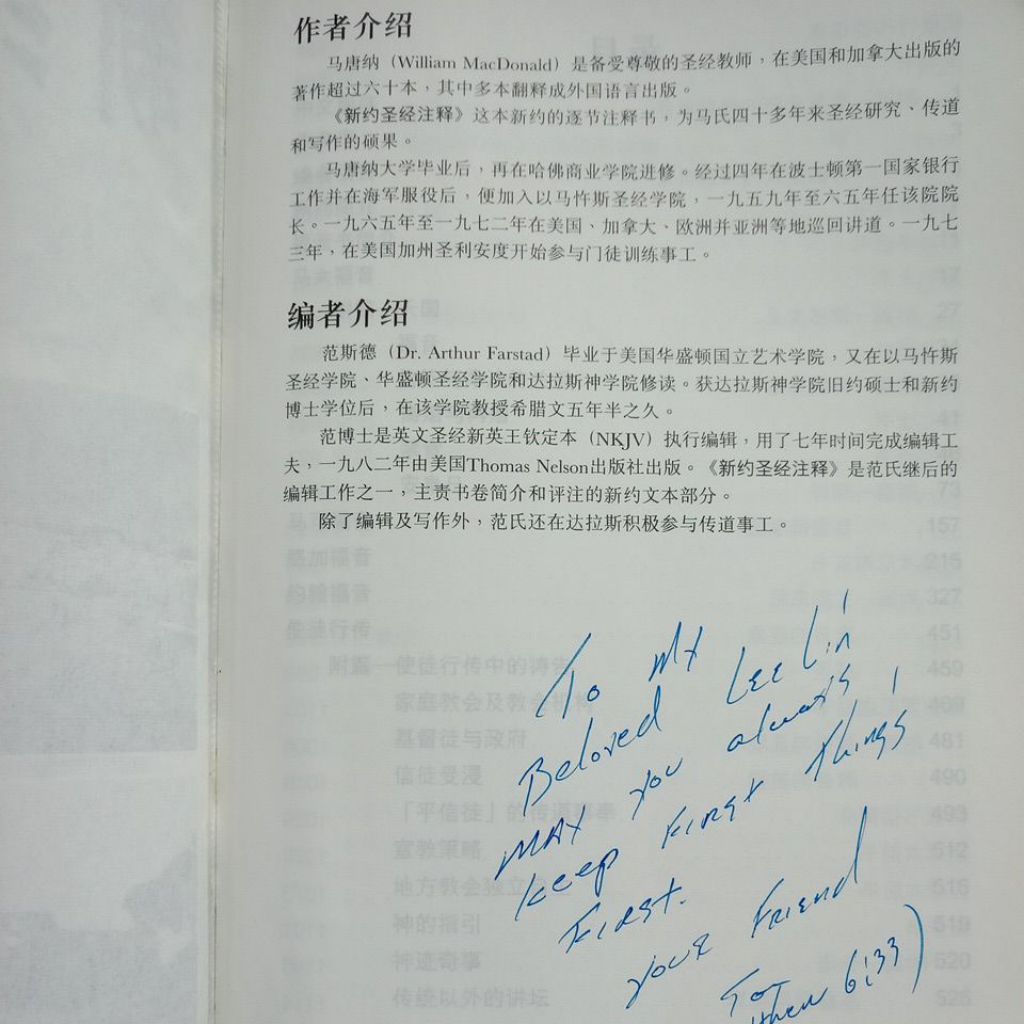 作者介绍
马唐纳（William MacDonald）是备受尊敬的圣经教师，在美国和加拿大出版的
著作超过六十本，其中多本翻译成外国语言出版。
《新约圣经注释》这本新约的逐节注释书，为马氏四十多年来圣经研究、传道
和写作的硕果。
马唐纳大学毕业后，再在哈佛商业学院进修。经过四年在波士顿第一国家银行
工作并在海军服役后，便加入以马忤斯圣经学院，一九五九年至六五年任该院院
长。一九六五年至一九七二年在美国、加拿大、欧洲并亚洲等地巡回讲道。一九七
三年，在美国加州圣利安度开始参与门徒训练事工。
编者介绍
范斯德（Dr. Arthur Farstad）毕业于美国华盛顿国立艺术学院，又在以马忤斯
圣经学院、华盛顿圣经学院和达拉斯神学院修读。获达拉斯神学院旧约硕士和新约
博士学位后，在该学院教授希腊文五年半之久。
范博士是英文圣经新英王钦定本（NKJV）执行编辑，用了七年时间完成编辑工
夫，一九八二年由美国Thomas Nelson出版社出版。《新约圣经注释》是范氏继后的
编辑工作之一，主责书卷简介和评注的新约文本部分。
除了编辑及写作外，范氏还在达拉斯积极参与传道事工。
To My
Beloved Lee Lin
May you always
keep First things
First.
your Friend
6:33)